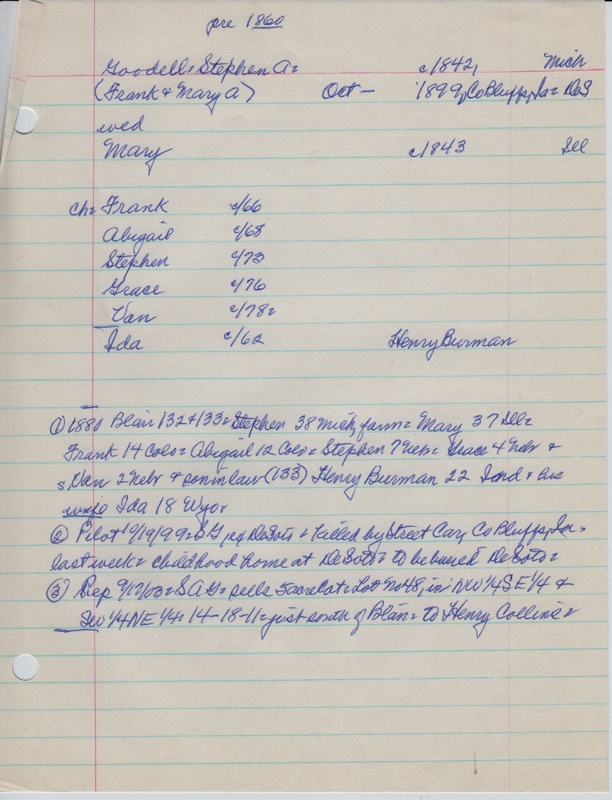 pre 1860
Goodell= Stephen A= c/1842, Mich
(Frank & Mary A) Oct - 1899, Co Bluffs, Ia= DeS
wed
Mary c/1843 Ill
ch= Frank c/66
Abigail c/68
Stephen c/73
Grace c/76
Van c/78=
Ida c/62 Henry Burman
① 1880 Blair 132+133= Stephen 38 Mich, farm= Mary 37 Ill=
Frank 14 Colo= Abigail 12 Colo= Stephen 7 Neb= Grace 4 Nebr &
s Van 2 Nebr & son in law (133) Henry Burman 22 Ind & his
wife Ida 18 Wyo=
② Pilot 10/19/99= SG, DeSoto= killed by Street Car, Co Bluffs, Ia=
last week= childhood home at DeSoto= to be buried DeSoto=
③ Rep 9/17/03= S A G= sells 5 acre lot= Lot No 48, in NW 1/4 SE 1/4 &
SW 1/4 NE 1/4= 14-18-11= just south of Blair= to Henry Collins=